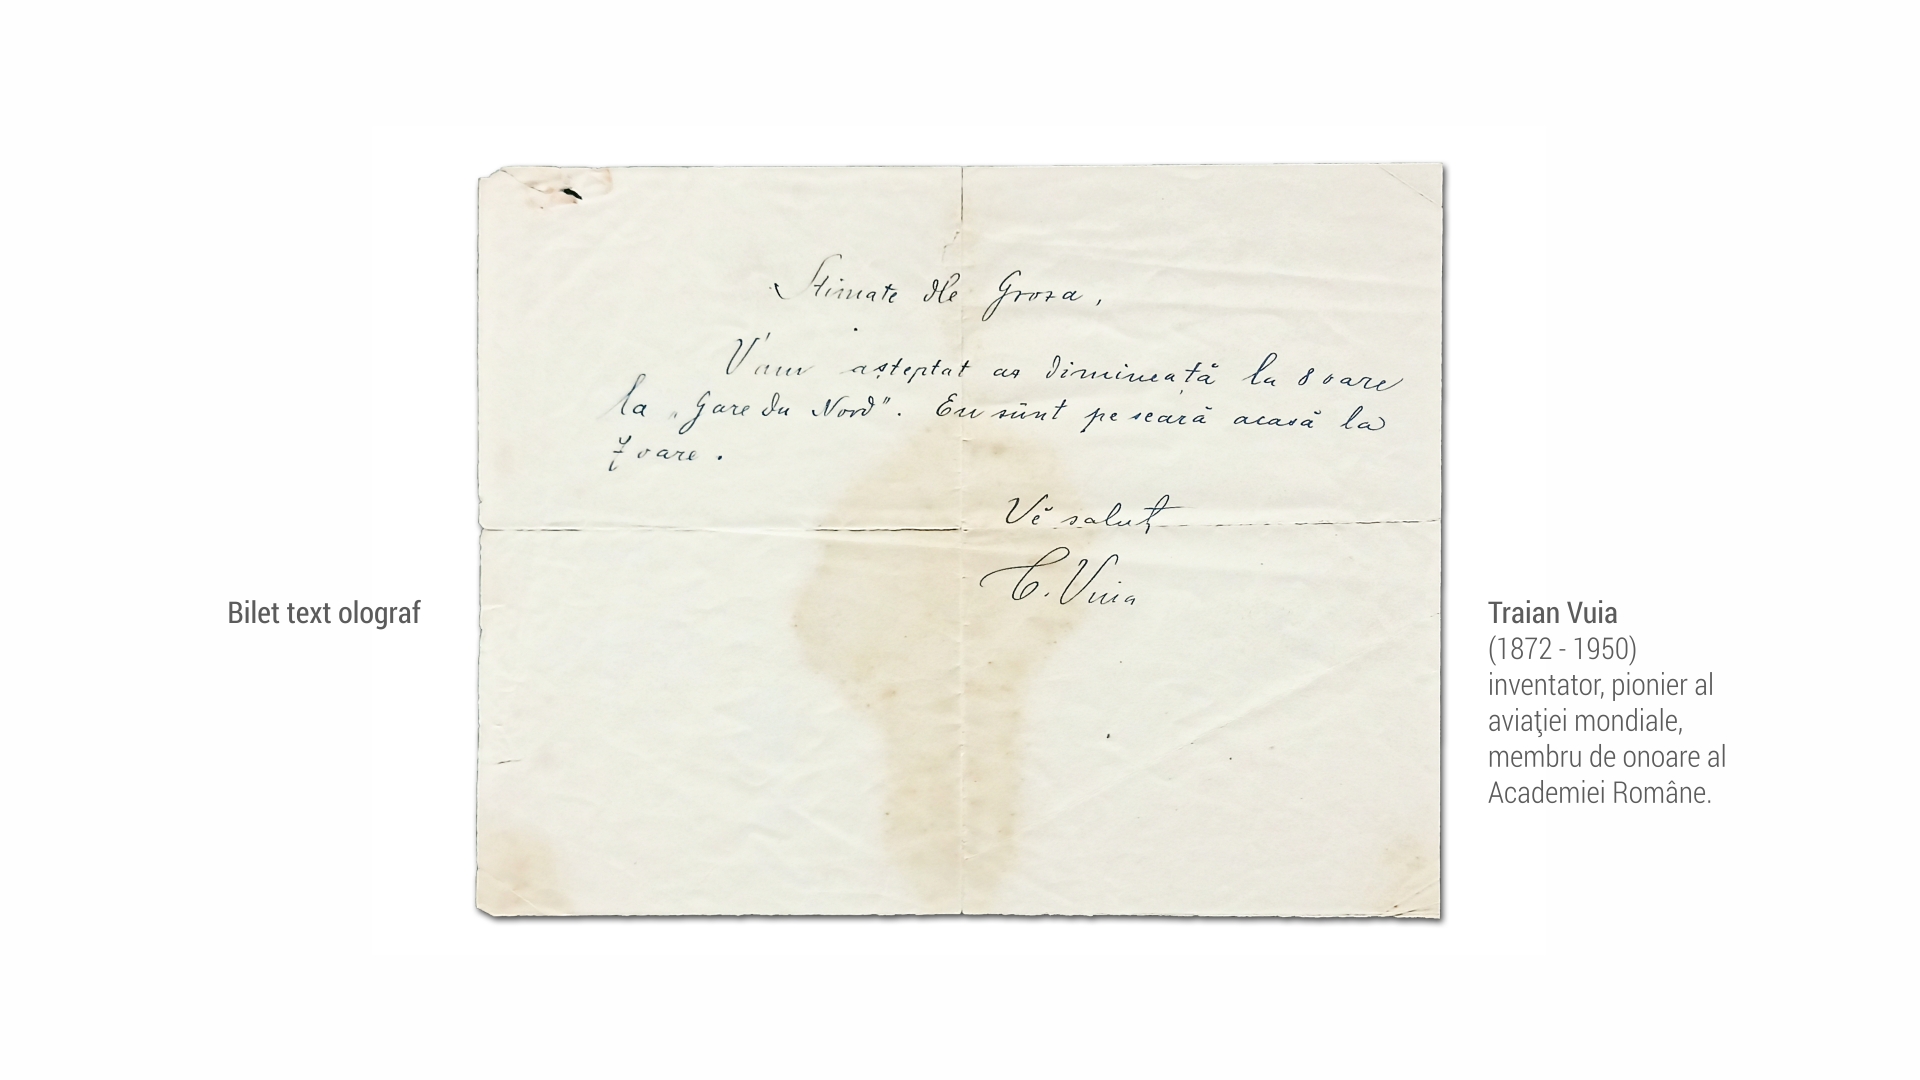 Stimate dle Groza,
V'am așteptat as dimineață la 8 oare
la „Gare du Nord”. Eu sûnt pe seară acasă la
7 oare.
Vĕ saluț
T. Vuia
Bilet text olograf
Traian Vuia
(1872 - 1950)
inventator, pionier al
aviaţiei mondiale,
membru de onoare al
Academiei Române.